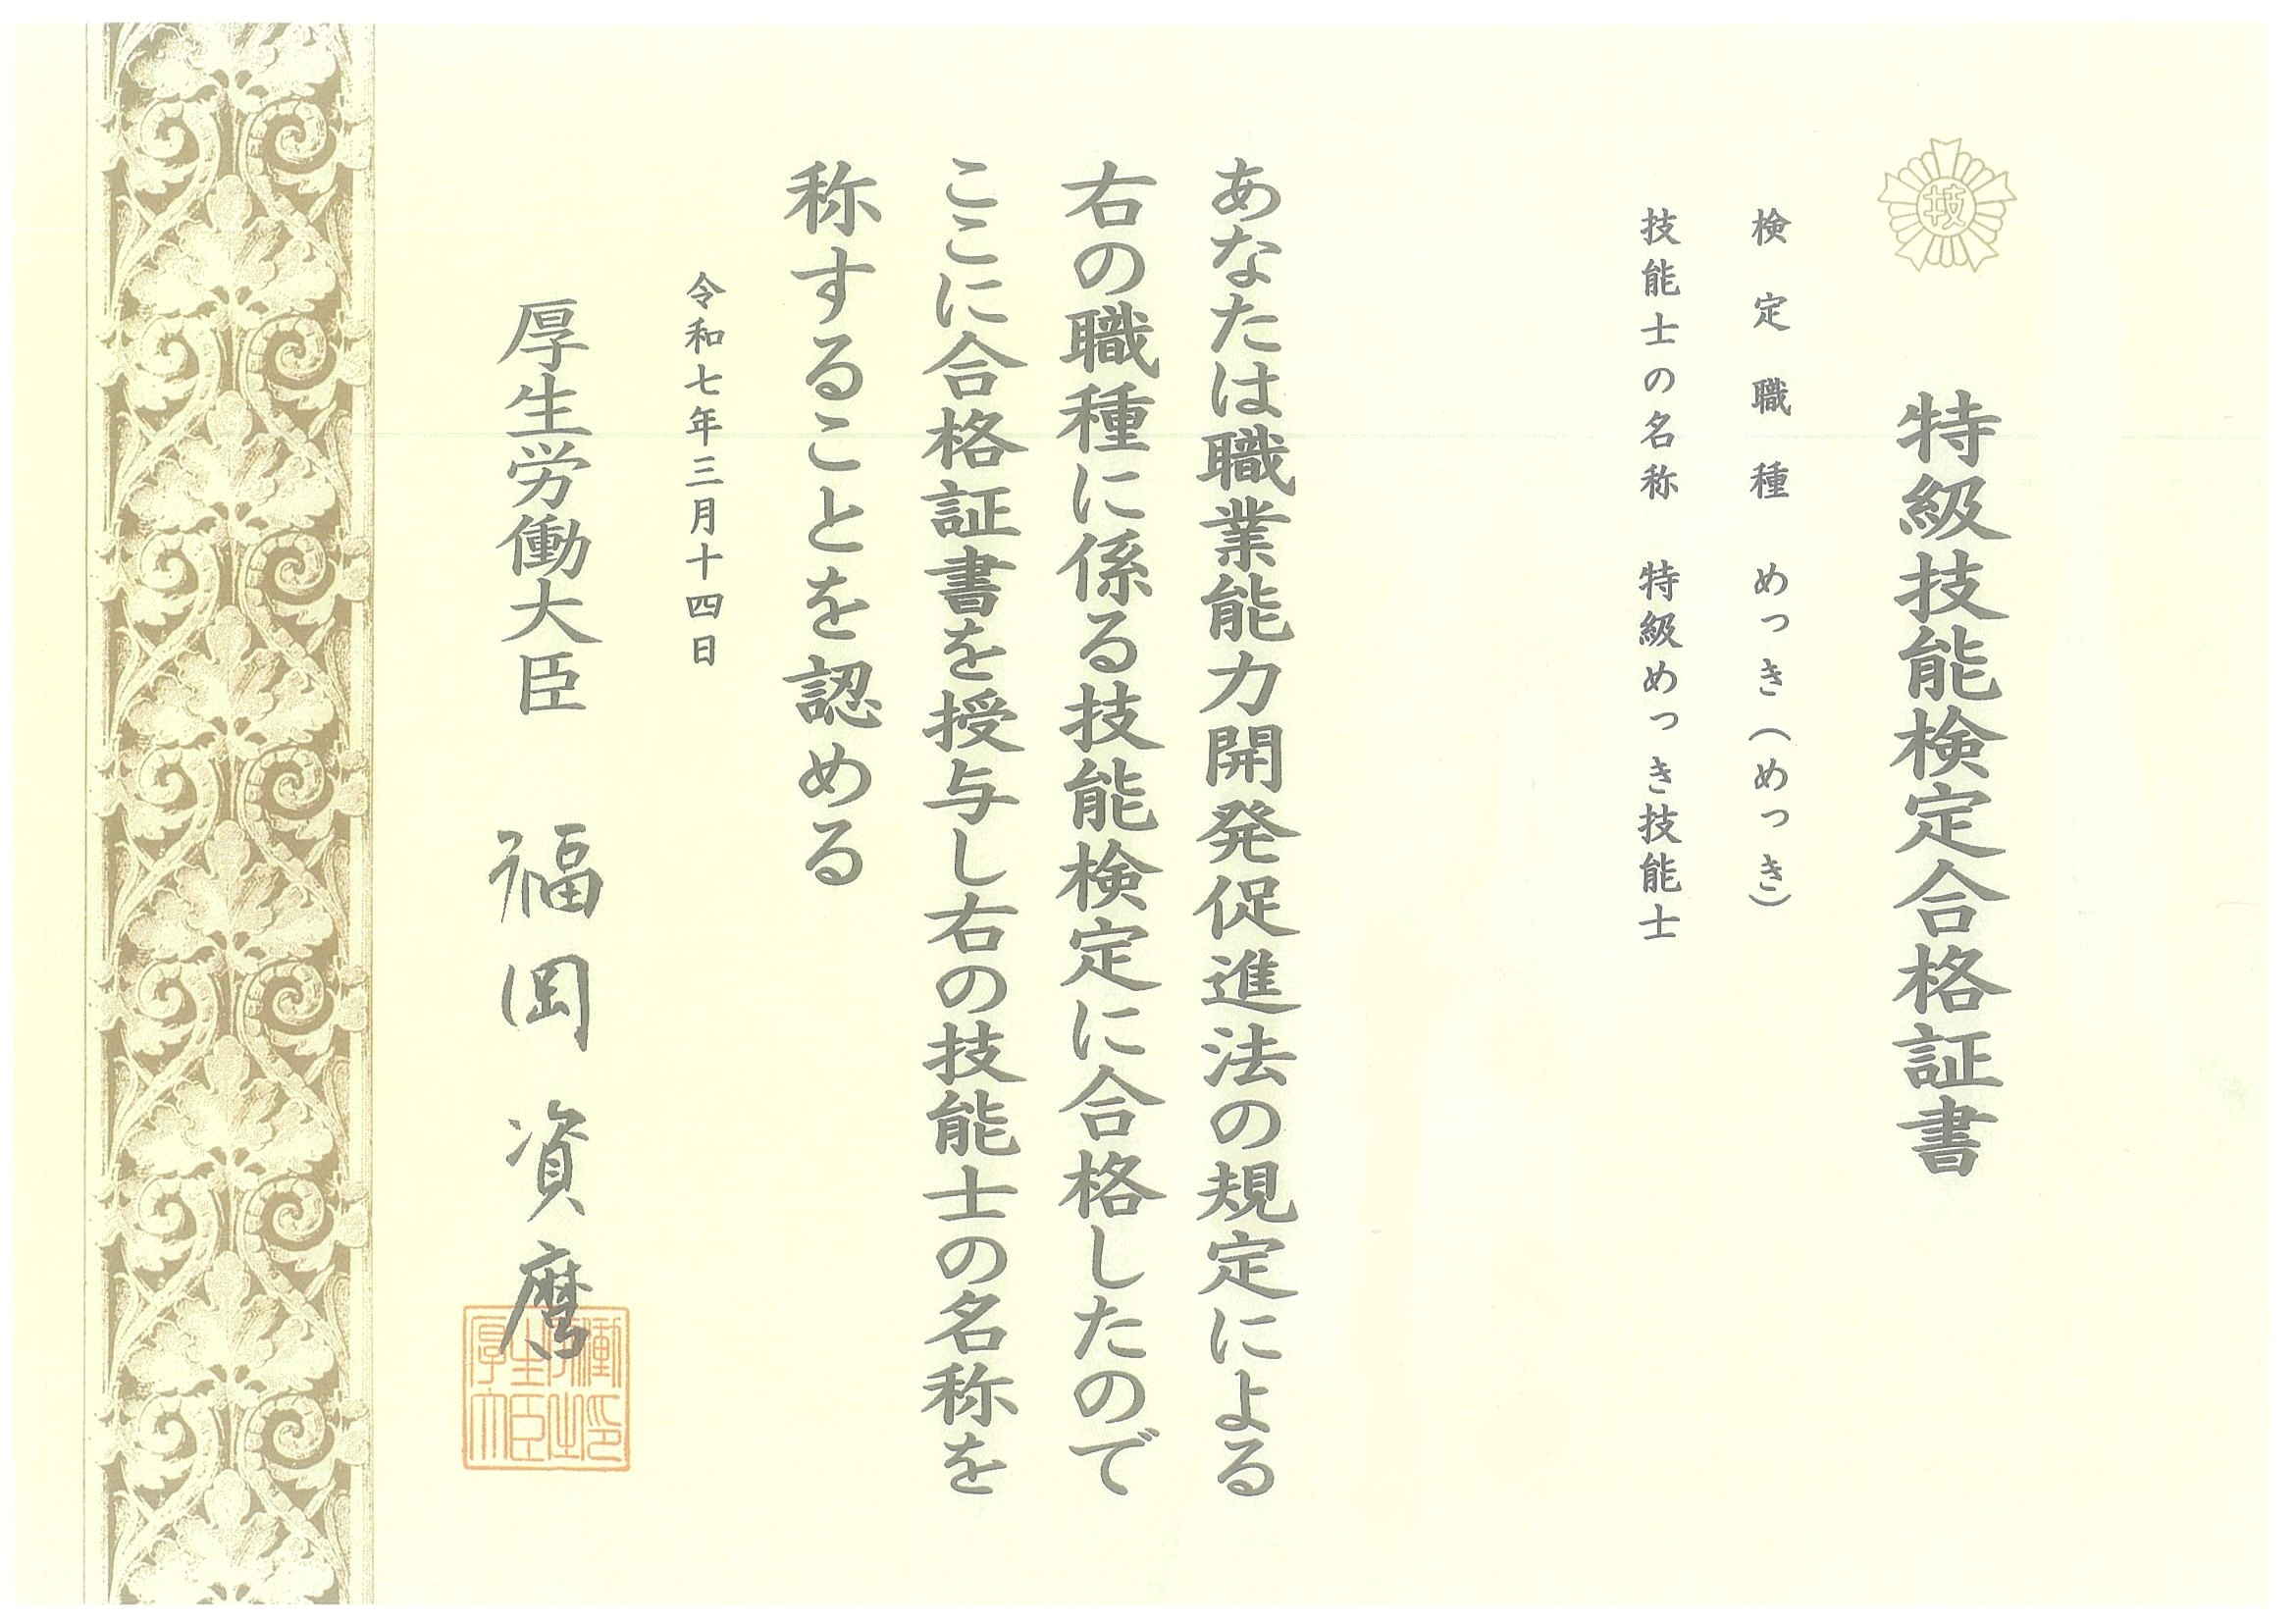 技
特級技能検定合格証書
検定職種 めっき(めっき)
技能士の名称 特級めっき技能士
あなたは職業能力開発促進法の規定による
右の職種に係る技能検定に合格したので
ここに合格証書を授与し右の技能士の名称を
称することを認める
令和七年三月十四日
厚生労働大臣 福岡資麿